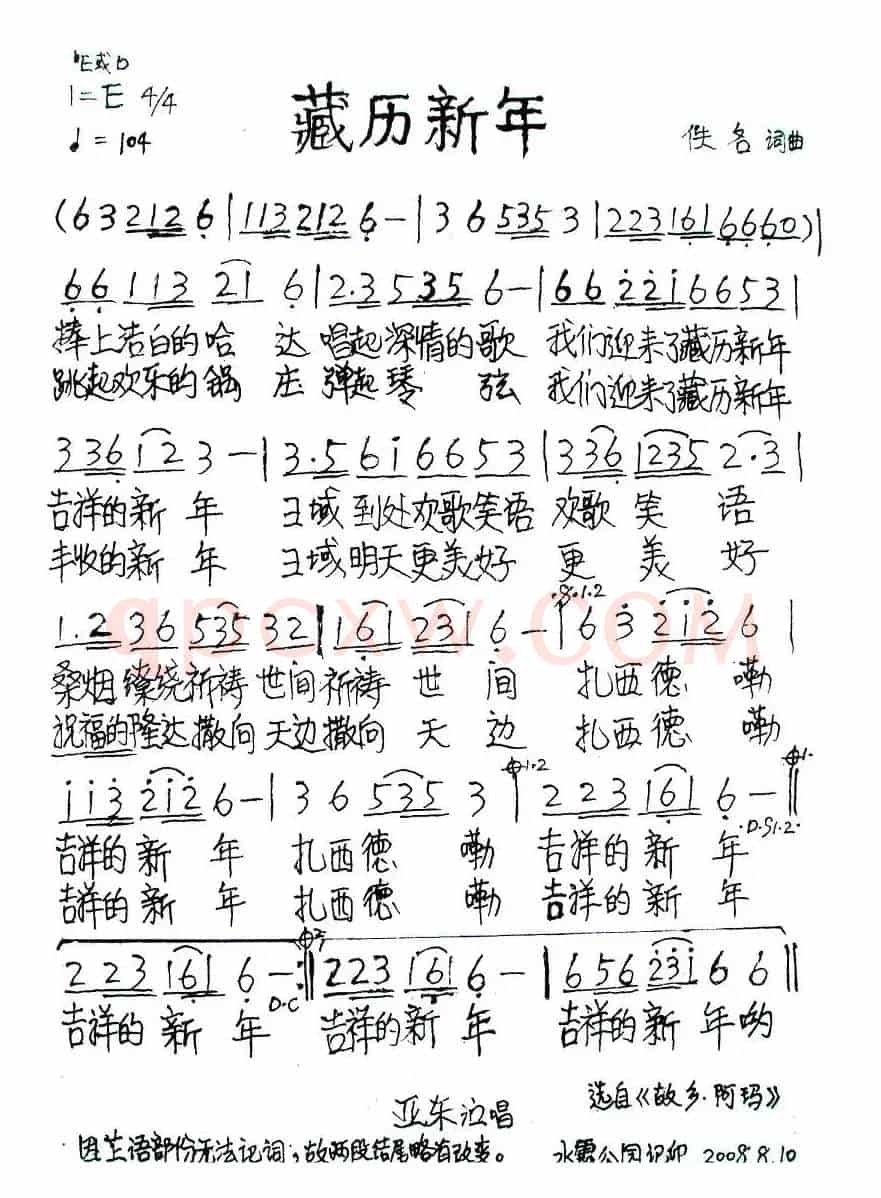 ♭E或D
1=E 4/4
♩=104
藏历新年
佚名 词曲
(6 3 212 6|113 212 6 -|3 6 535 3|223 161 6660)|
66 113 21 6|2.3 535 6 -|66 221 6653|
捧上洁白的哈 达 唱起深情的歌 我们迎来了藏历新年
跳起欢乐的锅 庄 弹起琴 弦 我们迎来了藏历新年
336 12 3 -|3.5 61 6653|336 1235 2.3|
吉祥的新 年 王域到处欢歌笑语 欢歌 笑 语
丰收的新 年 王域明天更美好 更 美 好
1.2 36 535 32|161 231 6 -|6 3 212 6|
桑烟缭绕祈祷世间祈祷 世 间 扎西德 嘞
祝福的隆达撒向天边撒向 天 边 扎西德 嘞
113 212 6 -|3 6 535 3|2 23 161 6 -||
D.S1.2
吉祥的 新 年 扎西德 嘞 吉祥的 新 年
吉祥的 新 年 扎西德 嘞 吉祥的 新 年
2 23 161 6 -:||223 161 6 -|656 231 6 6||
D.C
吉祥的 新 年 吉祥的新 年 吉祥的新 年哟
亚东 演唱
选自《故乡·阿玛》
因兰语部份无法记词,故两段结尾略有改变。
2008.8.10
qpcxw.COM